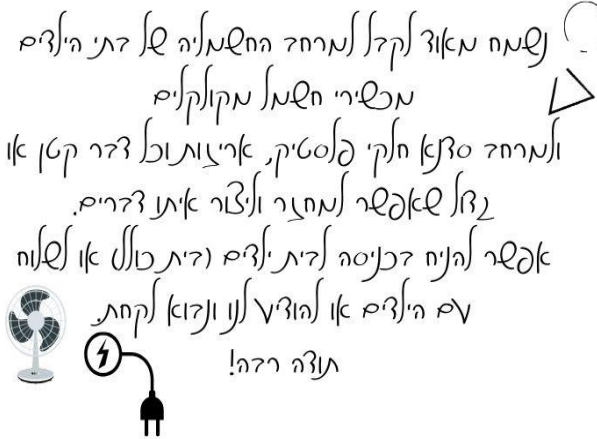 נשמח מאוד לקבל למרחב החשמליה של בתי הילדים
מכשירי חשמל מקולקלים
ולמרחב סדנא חלקי פלסטיק, אריזות וכל דבר קטן או
גדול שאפשר למחזר וליצור איתו דברים.
אפשר להניח בכניסה לבית ילדים (בית כולל) או לשלוח
עם הילדים או להודיע לנו ונבוא לקחת.
תודה רבה!